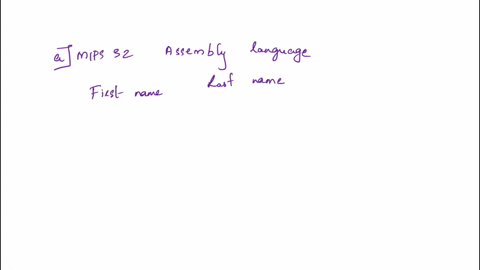 a] MIPS 32 Assembly language
First name Last name